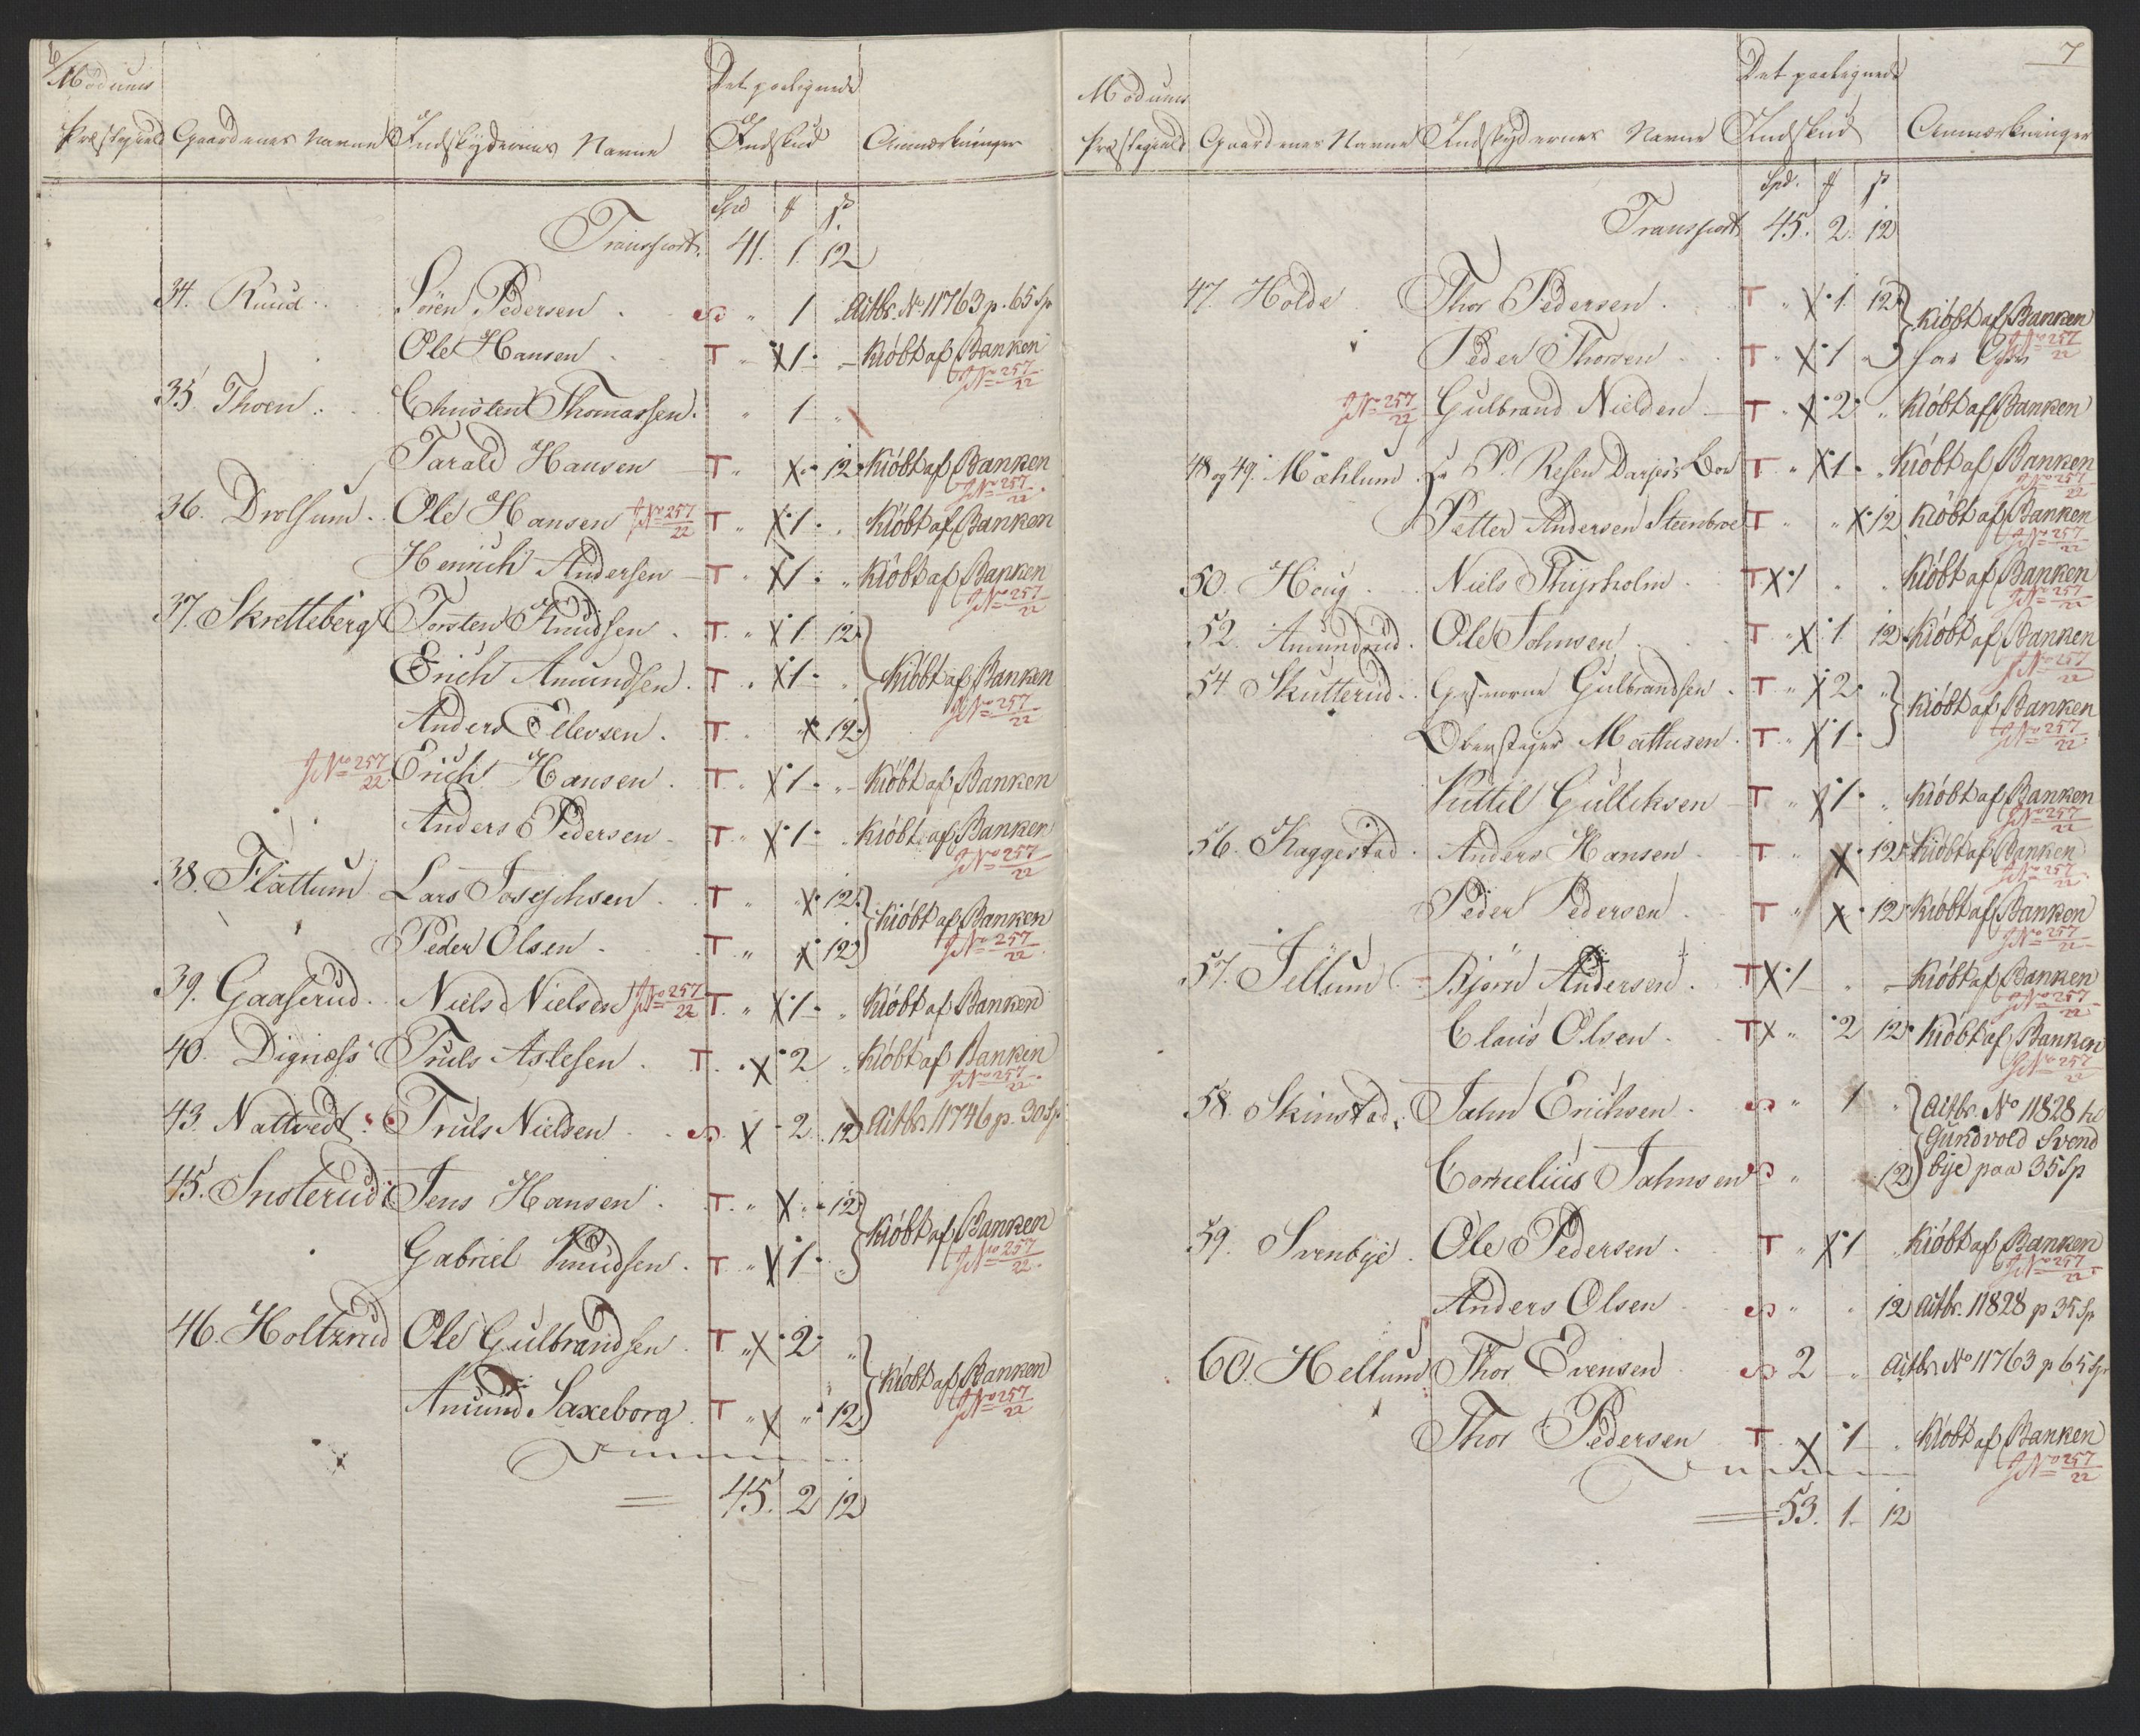 6/
Moduums
Præstegield Gaardenes Navne Indskydernes Navne Det paalignede Indskud Anmærkninger
Spd
Transport. 41. 1. 12
34. Ruud Sören Pedersen S " 1 " Actbr. No 11763 p. 65 Sp
Ole Hansen T " X 1 " Kiöbt af Banken
JNo 257/22
35 Thoen Christen Thomassen " 1 "
Tarald Hansen T " X " 12 Kiöbt af Banken
JNo 257/22
36. Drolsum Ole Hansen JNo 257/22 T " X 1 " Kiöbt af Banken
Henrich Andersen T " X 1 " Kiöbt af Banken
JNo 257/22
37. Skretteberg Torsten Knudsen T " X 1 12
Erich Amundsen T " X 1 " Kiöbt af Banken
JNo 257/22
Anders Ellevsen T " X 12
JNo 257/22 Erich Hansen T " X 1 " Kiöbt af Banken
Anders Pedersen T " X 1 " Kiöbt af Banken
JNo 257/22
38. Flattum Lars Josephsen T " X 12
Kiöbt af Banken
Peder Olsen T " X 12
JNo 257/22
39. Gaaserud Niels Nielsen JNo 257/22 T " X 1 " Kiöbt af Banken
40. Digness Truls Aslesen T " X 2 " Kiöbt af Banken
JNo 257/22
43. Nattvedt Truls Nielsen S X 2 12 Actbr. 11746 p. 30 Sp
45. Snoterud Jens Hansen T " X " 12
Kiöbt af Banken
Gabriel Knudsen T " X 1 "
JNo 257/22
46. Holtzrud Ole Gulbrandsen T " X 2 "
Kiöbt af Banken
Amund Saxeborg T " X " 12
JNo 257/22
45. 2 12
7
Modums
Præstegield Gaardenes Navne Indskydernes Navne Det paalignede Indskud Anmærkninger
Spd.
Transport 45. 2. 12
47. Holde Thor Pedersen T " X 1 12 Kiöbt af Banken
JNo 257/22
Peder Thorsen T " X 1 "
JNo 257/22 Gulbrand Nielsen T " X 2 " Kiöbt af Banken
48 og 49. Mæhlum P. Resen Darjes Boe T " X 1 " Kiöbt af Banken
JNo 257/22
Petter Andersen Steenbroe T " " X 12 Kiöbt af Banken
JNo 257/22
50. Houg Niels Thyrholm T X 1 " " Kiöbt af Banken
JNo 257/22
52. Amundrud Ole Johnsen T " X 1 12 Kiöbt af Banken
JNo 257/22
54 Skutterud Gesvorne Gulbrandsen T " X 2 "
Kiöbt af Banken
Oberstiger Mathisen T " X 1
JNo 257/22
Kittil Gulliksen T " X 1 " Kiöbt af Banken
JNo 257/22
56. Kaggestad Anders Hansen T " X 12 Kiöbt af Banken
JNo 257/22
Peder Pedersen T " X 12 Kiöbt af Banken
JNo 257/22
57. Jellum Bjørn Andersen T X 1 " " Kiöbt af Banken
JNo 257/22
Claus Olsen T X " 2 12 Kiöbt af Banken
JNo 257/22
58. Skinstad Jahn Erichsen S " 1 " Actbr. No 11828 til
Gundvold Svend
Cornelius Jahnsen S " 12 bye paa 35 Sp
59. Svenbye Ole Pedersen T " X 1 " Kiöbt af Banken
JNo 257/22
Anders Olsen S " " 12 Actbr. 11828 p 35 Sp
60. Hellum Thor Evensen S 2 " " Actbr. No 11763 p 65 Sp
Thor Pedersen T " X 1 " Kiöbt af Banken
JNo 257/22
53. 1. 12